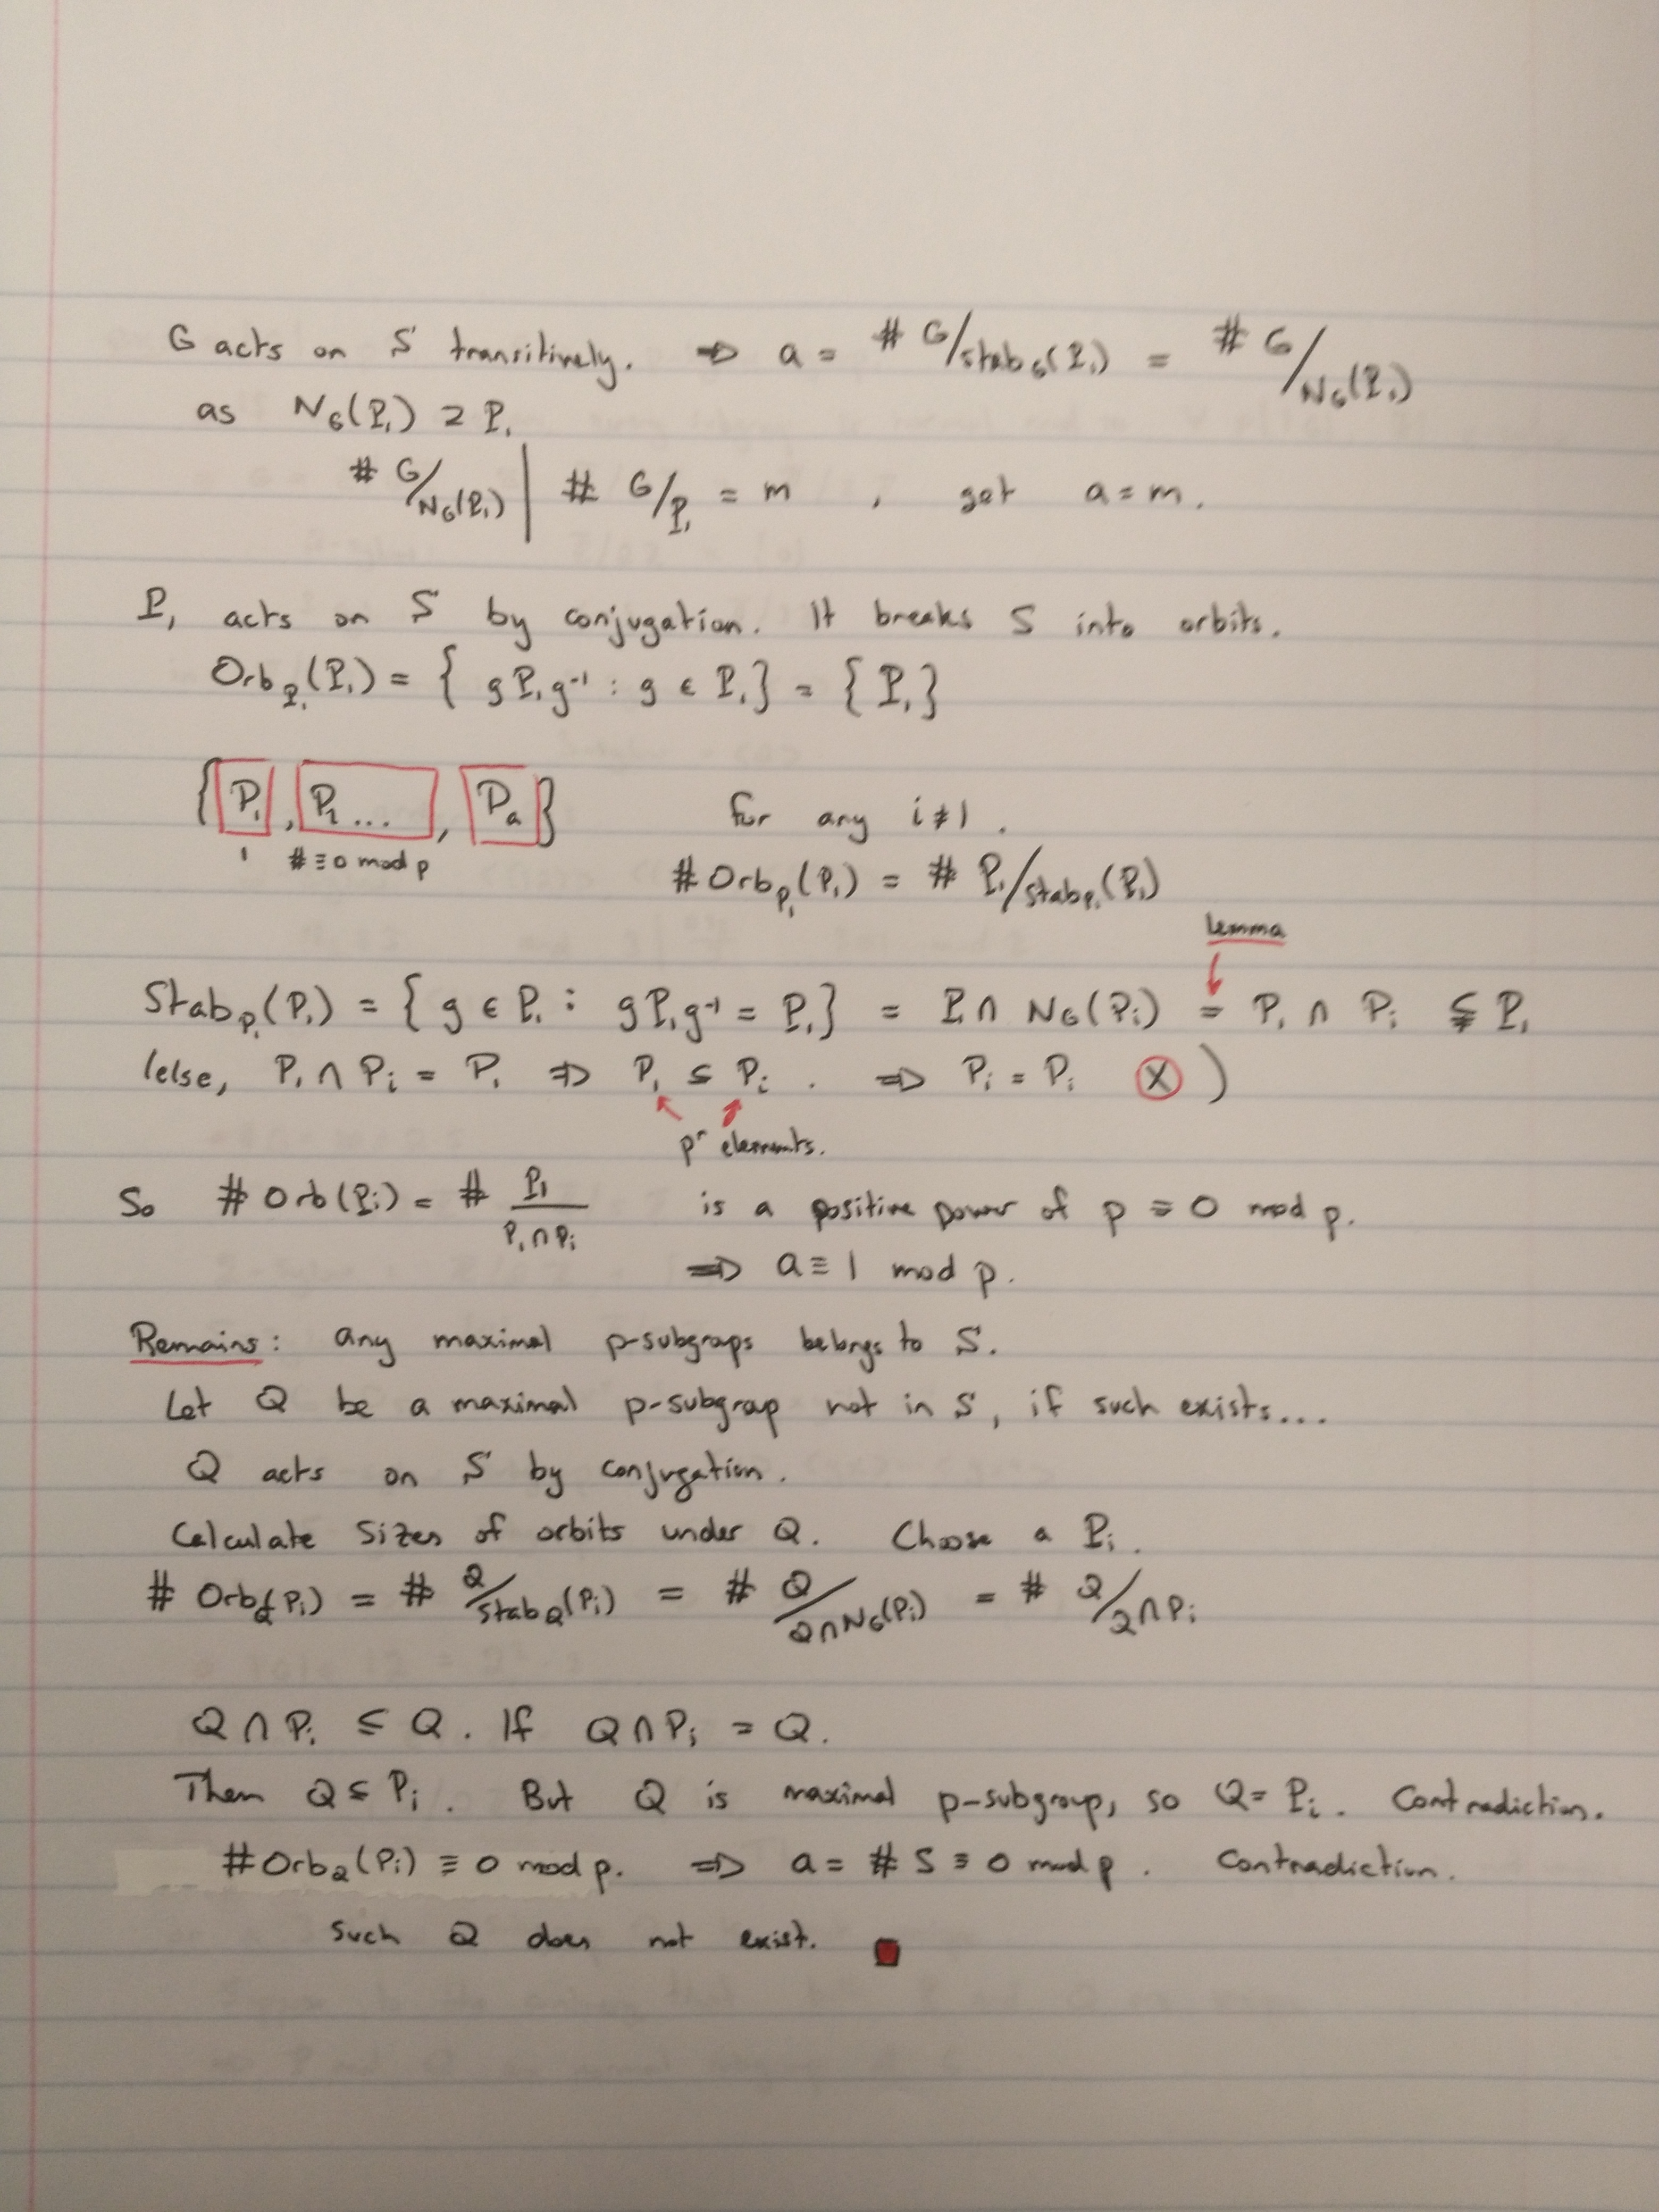 G acts on S transitively. ⇒ a = # G/Stab_G(P₁) = # G/N_G(P₁)
as N_G(P₁) ⊇ P₁
# G/N_G(P₁) | # G/P₁ = m , get a = m.
P₁ acts on S by conjugation. It breaks S into orbits.
Orb_P₁(P₁) = { gP₁g⁻¹ : g ∈ P₁} = {P₁}
{P₁, P₂ ..., Pₐ} for any i ≠ 1.
1 # ≡ 0 mod p
# Orb_P₁(Pᵢ) = # P₁/Stab_P₁(Pᵢ)
Lemma
Stab_P₁(Pᵢ) = { g ∈ P₁ : gPᵢg⁻¹ = Pᵢ} = P₁ ∩ N_G(Pᵢ) = P₁ ∩ Pᵢ ⊊ P₁
(else, P₁ ∩ Pᵢ = P₁ ⇒ P₁ ⊆ Pᵢ . ⇒ P₁ = Pᵢ ⓧ )
pʳ elements.
So # Orb(Pᵢ) = # P₁/P₁∩Pᵢ is a positive power of p ≡ 0 mod p.
⇒ a ≡ 1 mod p.
Remains: any maximal p-subgraps belongs to S.
Let Q be a maximal p-subgrap not in S, if such exists...
Q acts on S by conjugation.
Calculate sizes of orbits under Q. Choose a Pᵢ.
# Orb_Q(Pᵢ) = # Q/Stab_Q(Pᵢ) = # Q/Q∩N_G(Pᵢ) = # Q/Q∩Pᵢ
Q ∩ Pᵢ ⊆ Q. If Q ∩ Pᵢ = Q.
Then Q ⊆ Pᵢ. But Q is maximal p-subgroup, so Q = Pᵢ. Contradiction.
# Orb_Q(Pᵢ) ≡ 0 mod p. ⇒ a = # S ≡ 0 mod p. Contradiction.
Such Q does not exist. ■